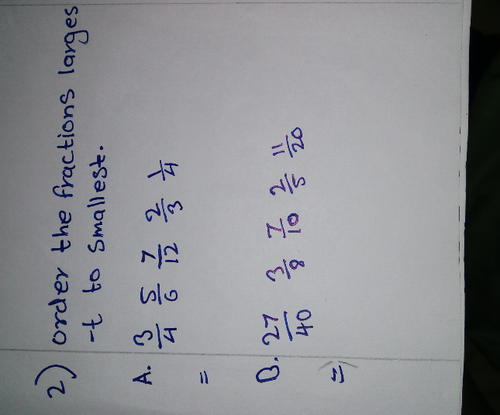 2) order the fractions larges
-t to smallest.
A. 3/4 5/6 7/12 2/3 1/4
=
B. 27/40 3/8 7/10 2/5 11/20
=